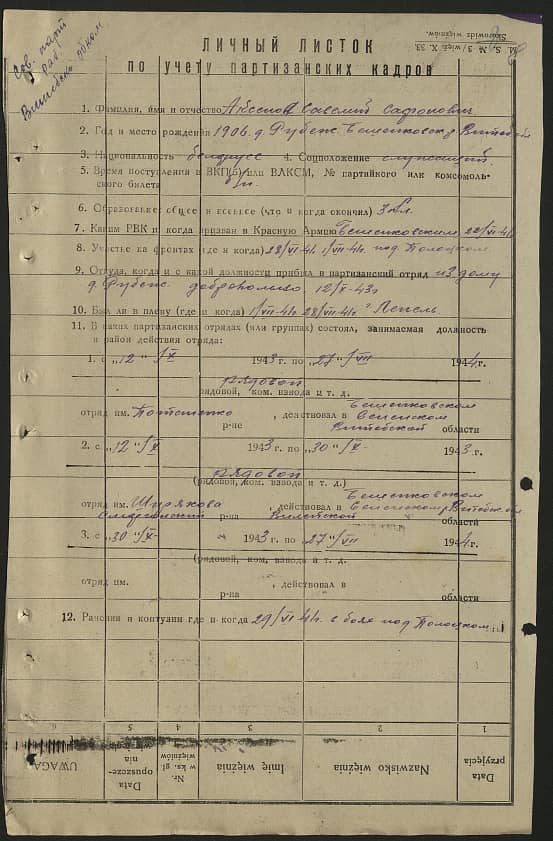 M. S. № 3 / więź. X. 33.
Skorowidz więźniów.
Сов. парт
раб.
ЛИЧНЫЙ ЛИСТОК
по учету партизанских кадров
1. Фамилия, имя и отчество Савелий Сафронович
2. Год и место рождения 1906. д. Рубеж. Бешенковск.
3. Национальность белорусс 4. Соцположение служащий.
5. Время поступления в ВКП(б) или ВЛКСМ, № партийного или комсомоль-
ского билета
6. Образование общее и военное (что и когда окончил) 3 кл.
7. Каким РВК и когда призван в Красную Армию Бешенковским
8. Участие на фронтах (где и когда) 28/VI-41 1/VII-41г. под Полоцком
9. Откуда, когда и с какой должности прибыл в партизанский отряд из дому
д. Рубеж. добровольно. 12/X-43г
10. Был ли в плену (где и когда) 1/VII-41г. 28/VII-41г. г Лепель.
11. В каких партизанских отрядах (или группах) состоял, занимаемая должность
и район действия отряда:
1. с „12“ /X 1943 г. по „27“/VII 1944 г.
рядовой
рядовой, ком. взвода и т. д.
Бешенковском
отряд им. , действовал в
р-не Витебской области
2. с „12“ /X 1943 г. по „30“/X- 1943 г.
рядовой
(рядовой, ком. взвода и т. д.)
Бешенковском
отряд им. Ширякова , действовал в
р-на Вилейской области
3. с „30“/X- 1943 г. по „27“/VII 1944 г.
(рядовой, ком. взвода и т. д.
отряд им. , действовал в
р-на области
12. Ранения и контузии где и когда 29/VI-41г. в боях под Полоцком
1 2 3 4 5 6
Data
przyjęcia
Nazwisko więźnia
Imię więźnia
Nr.
w ks. gł.
więźniów
Data
opuszcze-
nia
więzienia
UWAGA